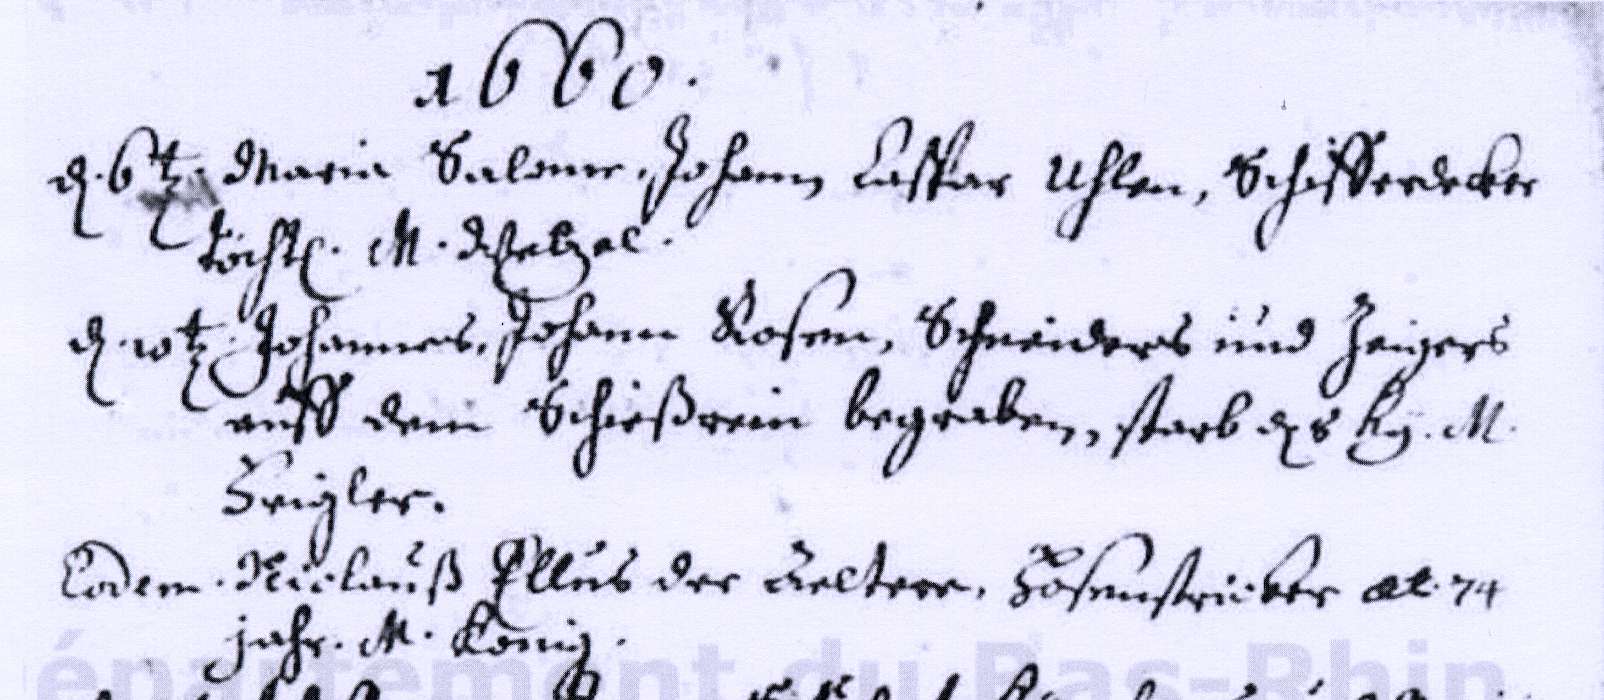 1660.
d. 6t. Maria Salome, Johann Casspar Uhlen, Schifferdecker
töchtl. M. Wetzel.
d. 10t. Johannes, Johann Rosen, Schneiders und Zeigers
auff dem Schießrein begraben, starb d. 8
Zeigler.
Eodem. Niclauß Ellus der Aeltere, Hosenstricker æt. 74
jahr. M. König.
épartement du Bas-Rhin